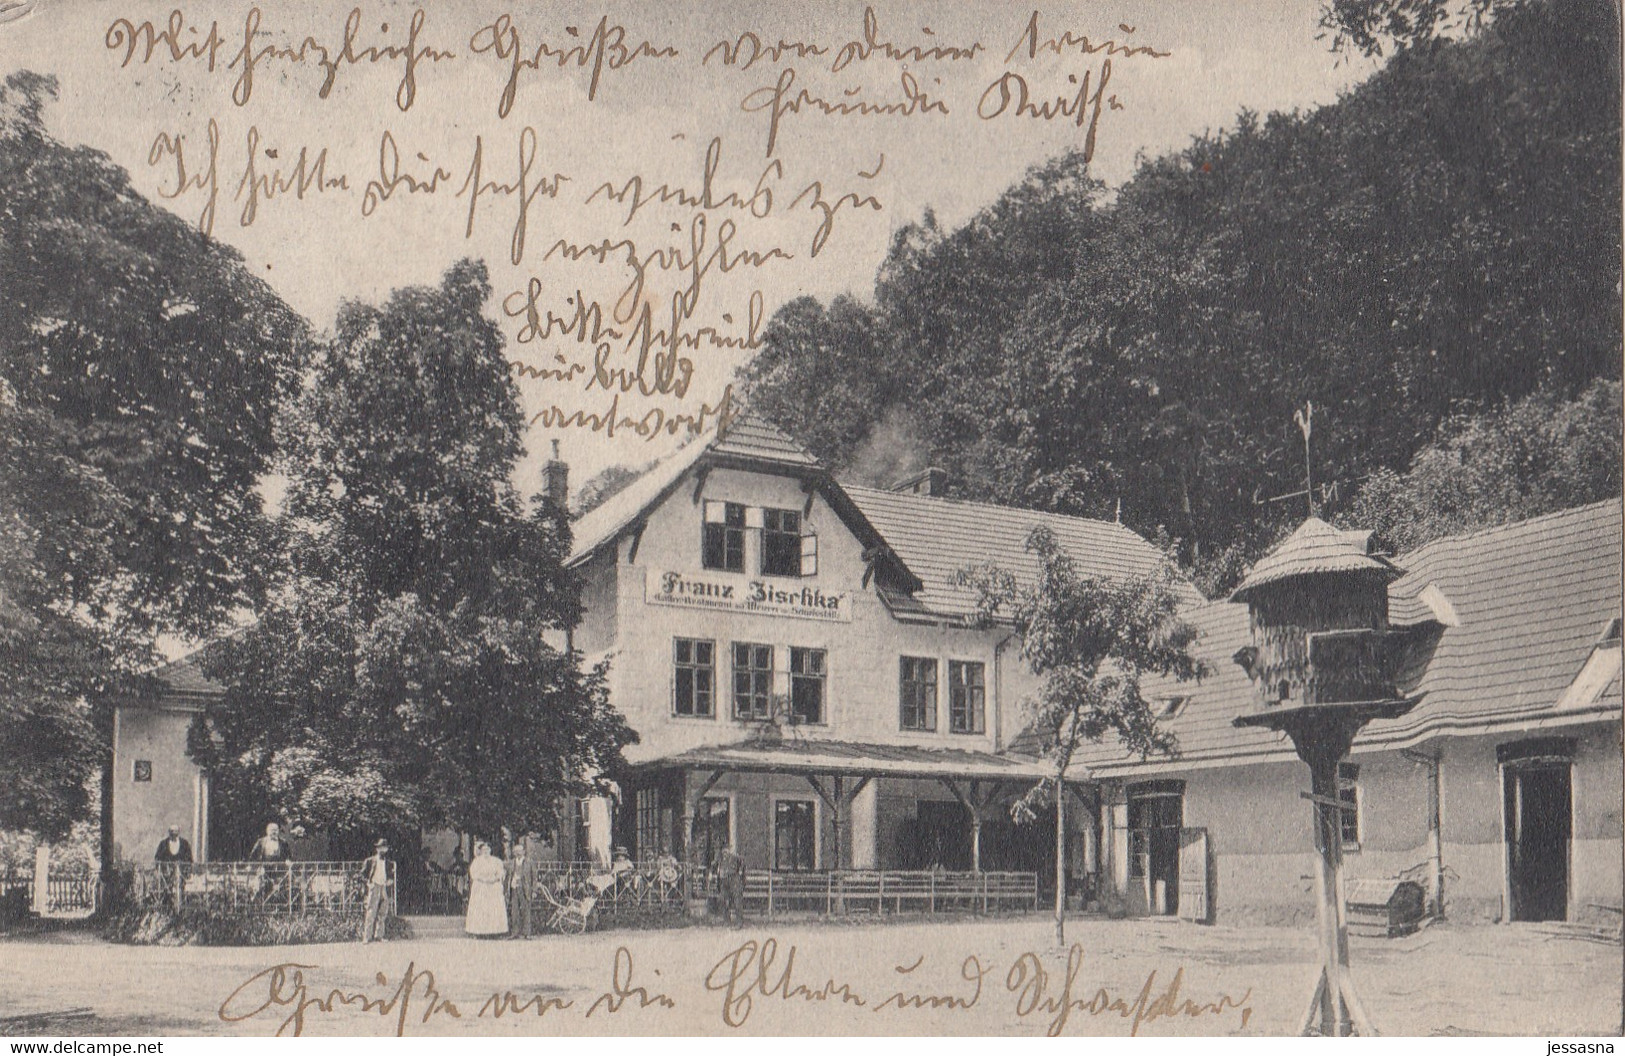 Mit herzlichen Grüßen von Deiner treuen
Freundin Käthe
Ich hätte Dir sehr vieles zu
erzählen
Bitte schreib
mir bald
antwort
Franz Zischka
Grüße an die Eltern und Schwester,
delcampe.net
jessasna